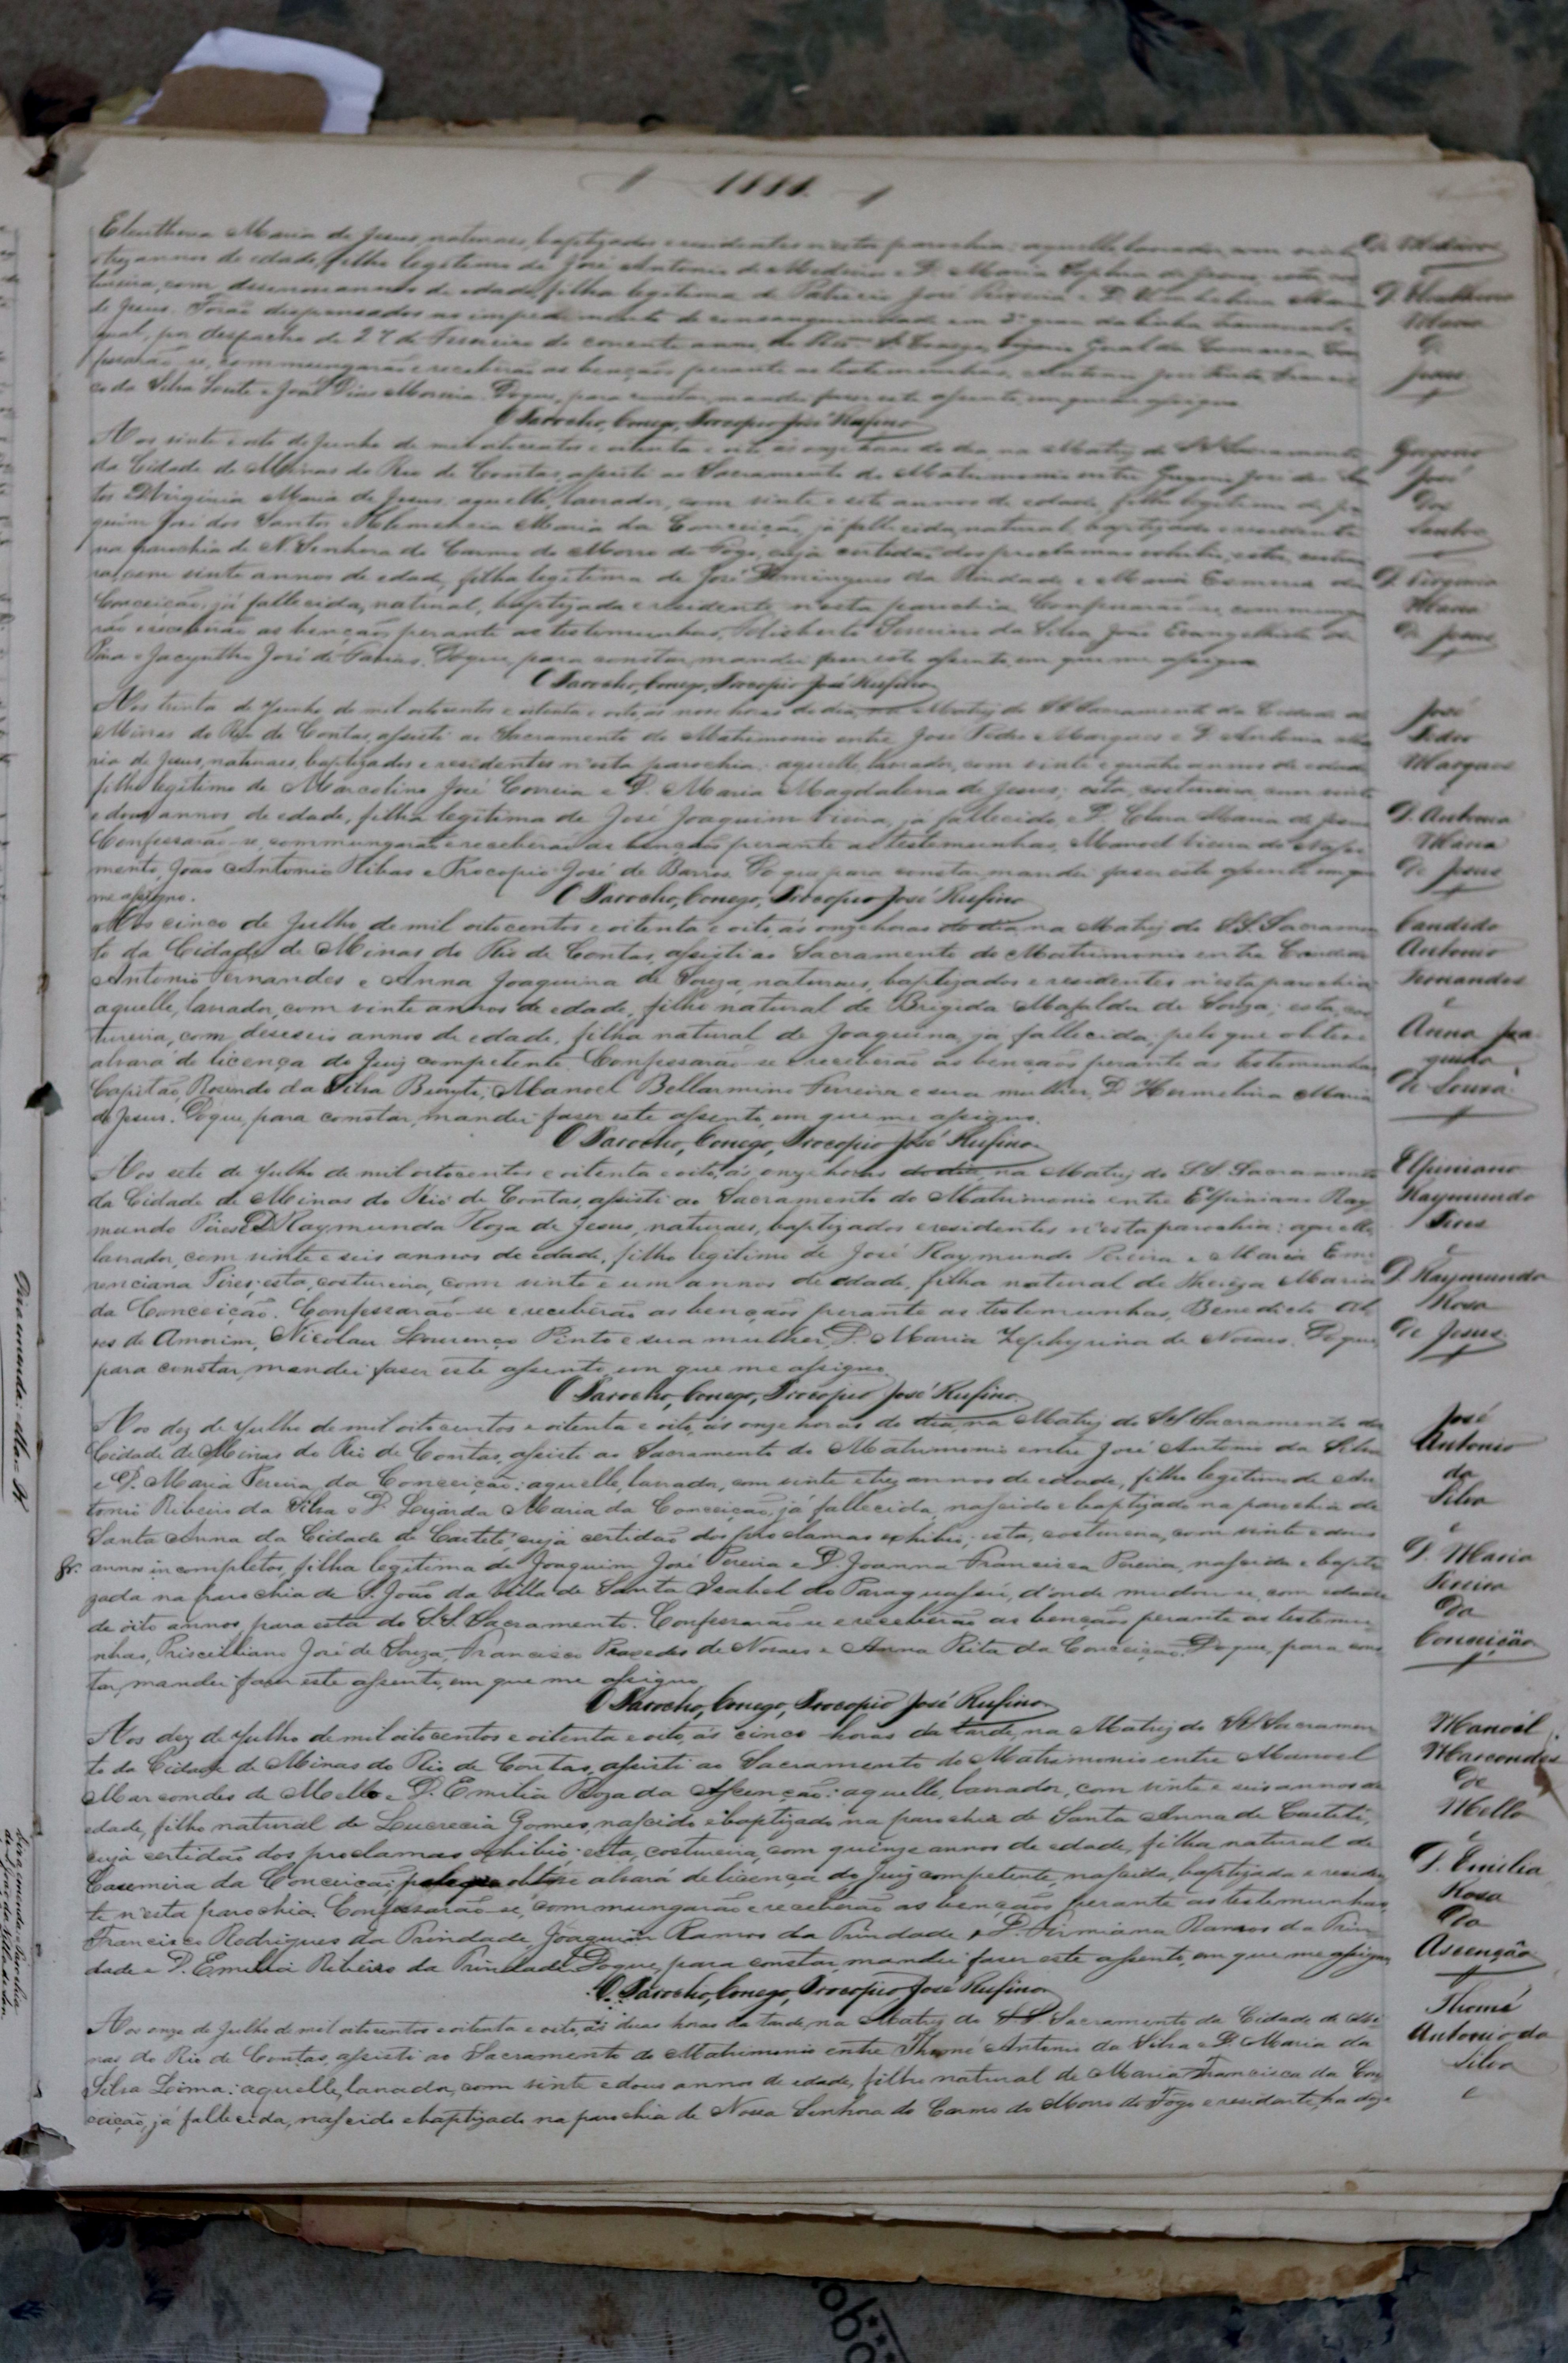 1888.
Eleutheria Maria de Jesus, naturaes, baptizados e residentes n'esta parochia: aquelle, lavrador, com vinte
e tres annos de edade, filho legitimo de José Antonio de Medeiros e D. Maria
tureira, com desenove annos de edade, filha legitima de Patricio José e D. Umbelina Maria
de Jesus. Forão dispensados no impedimento de consanguinidade em 2º grau da linha transversal
igual, por despacho de 27 de Fevereiro do corrente anno, do Geral da Comarca. Con
fessarão-se, commungarão e receberão as benções perante as testemunhas, Antonio José
co da Silva Souto e José Dias Moreira. Do que, para constar, mandei faser este assento, em que me assigno.
O Parocho, Conego, Procopio José Rufino
Aos vinte e oito de Junho de mil oitocentos e oitenta e oito, ás onze horas do dia, na Matriz do SS. Sacramento
da Cidade de Minas do Rio de Contas, assisti ao Sacramento do Matrimonio entre José dos San
tos e D. Virginia Maria de Jesus: aquelle, lavrador, com vinte e sete annos de edade, filho legitimo de Joa
quim José dos Santos e Maria da Conceição, já fallecida, natural, baptizado e residente
na parochia de N. Senhora do Carmo do Morro do Fogo, cuja certidão dos proclamas exhibio; esta, costurei
ra, com vinte annos de edade, filha legitima de José Domingues da Trindade e Maria da
Conceição, já fallecida, natural, baptizada e residente n'esta parochia. Confessarão-se, communga
rão e receberão as benções perante as testemunhas, Felisberto da Silva, João Evangelista de
Pina e Jacyntho José de Farias. Do que, para constar, mandei faser este assento, em que me assigno.
O Parocho, Conego, Procopio José Rufino
Aos trinta de Junho de mil oitocentos e oitenta e oito, ás nove horas do dia, na Matriz do SS. Sacramento da Cidade de
Minas do Rio de Contas, assisti ao Sacramento do Matrimonio entre José Pedro Marques e D. Antonia Ma
ria de Jesus, naturaes, baptizados e residentes n'esta parochia: aquelle, lavrador, com vinte e quatro annos de edade,
filho legitimo de Marcolino José Correia e D. Maria Magdalena de Jesus; esta, costureira, com vinte
e dous annos de edade, filha legitima de José Joaquim Vieira, já fallecido, e D. Clara Maria de Jesus.
Confessarão-se, commungarão e receberão as benções perante as testemunhas, Manoel Vieira do Nasci
mento, João Antonio Ribas e Procopio José de Barros. Do que para constar, mandei faser este assento em que
me assigno.
O Parocho, Conego, Procopio José Rufino
Aos cinco de Julho de mil oitocentos e oitenta e oito, ás onze horas do dia na Matriz do SS. Sacramen
to da Cidade de Minas do Rio de Contas, assisti ao Sacramento do Matrimonio entre Candido
Antonio Fernandes e Anna Joaquina de Souza, naturaes, baptizados e residentes n'esta parochia:
aquelle, lavrador, com vinte annos de edade, filho natural de Brigida Mafalda de Souza; esta, cos
tureira, com deseseis annos de edade, filha natural de Joaquina, já fallecida; pelo que obteve
alvará de licença do Juiz competente. Confessarão-se e receberão as benções perante as testemunhas
Capitão, Rosendo da Silva, Manoel Bellarmino Ferreira e sua mulher, D. Hermelina Maria
de Jesus. Do que, para constar, mandei faser este assento, em que me assigno.
O Parocho, Conego, Procopio José Rufino
Aos sete de Julho de mil oitocentos e oitenta e oito, ás onze horas do dia, na Matriz do SS. Sacramento
da Cidade de Minas do Rio de Contas, assisti ao Sacramento do Matrimonio entre Elpiniano Ray
mundo Pires e D. Raymunda Roza de Jesus, naturaes, baptizados e residentes n'esta parochia: aquelle,
lavrador, com vinte e seis annos de edade, filho legitimo de José Raymundo Pereira e Maria Eme
renciana Pires; esta, costureira, com vinte e um annos de edade, filha natural de Thereza Maria
da Conceição. Confessarão-se e receberão as benções perante as testemunhas, Benedicto Al
ves de Amorim, Nicolau Lourenço Pinto e sua mulher, D. Maria Zephyrina de Novaes. Do que,
para constar, mandei faser este assento, em que me assigno.
O Parocho, Conego, Procopio José Rufino
Aos dez de Julho de mil oitocentos e oitenta e oito, ás onze horas do dia, na Matriz do SS. Sacramento da
Cidade de Minas do Rio de Contas, assisti ao Sacramento do Matrimonio entre José Antonio da Silva
e D. Maria Pereira da Conceição: aquelle, lavrador, com vinte e tres annos de edade, filho legitimo de An
tonio Ribeiro da Silva e D. Luzarda Maria da Conceição, já fallecida, nascido e baptizado na parochia de
Santa Anna da Cidade de Caeteté, cuja certidão dos proclamas exhibio; esta, costureira, com vinte e dous
annos incompletos, filha legitima de Joaquim José Pereira e D. Joanna Francisca Pereira, nascida e bapti
zada na parochia de S. João da Villa de Santa Isabel do Paraguassú, d'onde mudou-se, com edade
de oito annos, para esta do S.S. Sacramento. Confessarão-se e receberão as benções perante as testemu
nhas, Priscilliano José de Souza, Francisco Praxedes de Novaes e Anna Rita da Conceição. Do que, para cons
tar, mandei faser este assento, em que me assigno.
O Parocho, Conego, Procopio José Rufino
Aos dez de Julho de mil oitocentos e oitenta e oito, ás cinco horas da tarde, na Matriz do SS. Sacramen
to da Cidade de Minas do Rio de Contas, assisti ao Sacramento do Matrimonio entre Manoel
Marcondes de Mello e D. Emilia Roza da Assenção: aquelle, lavrador, com vinte e seis annos de
edade, filho natural de Lucrecia Gomes, nascido e baptizado na parochia de Santa Anna de Caeteté,
cuja certidão dos proclamas exhibio; esta, costureira, com quinze annos de edade, filha natural de
Casemira da Conceição, pelo que obteve alvará de licença do Juiz competente, nascida, baptizada e residen
te n'esta parochia. Confessarão-se, commungarão e receberão as benções perante as testemunhas,
Francisco Rodrigues da Trindade, Joaquim Ramos da Trindade e D. Firmiana Ramos da Trin
dade e D. Emilia Ribeiro da Trindade. Do que, para constar, mandei faser este assento, em que me assigno.
O Parocho, Conego, Procopio José Rufino
Aos onze de Julho de mil oitocentos e oitenta e oito, ás duas horas da tarde, na Matriz do SS. Sacramento da Cidade de Mi
nas do Rio de Contas, assisti ao Sacramento do Matrimonio entre Thomé Antonio da Silva e D. Maria da
Silva Lima: aquelle, lavrador, com vinte e dous annos de edade, filho natural de Maria Francisca da Con
ceição, já fallecida, nascido e baptizado na parochia de Nossa Senhora do Carmo do Morro do Fogo e residente, ha doze
de Medeiros
e
D. Eleutheria
Maria
de
Jesus
José
dos
Santos
e
D. Virginia
Maria
de Jesus
José
Pedro
Marques
e
D. Antonia
Maria
de Jesus
Candido
Antonio
Fernandes
e
Anna Joa
quina
de Souza
Elpiniano
Raymundo
Pires
e
D. Raymunda
Rosa
de Jesus
José
Antonio
da
Silva
e
D. Maria
Pereira
da
Conceição
Manoel
Marcondes
de
Mello
e
D. Emilia
Rosa
da
Ascenção
Thomé
Antonio da
Silva
e